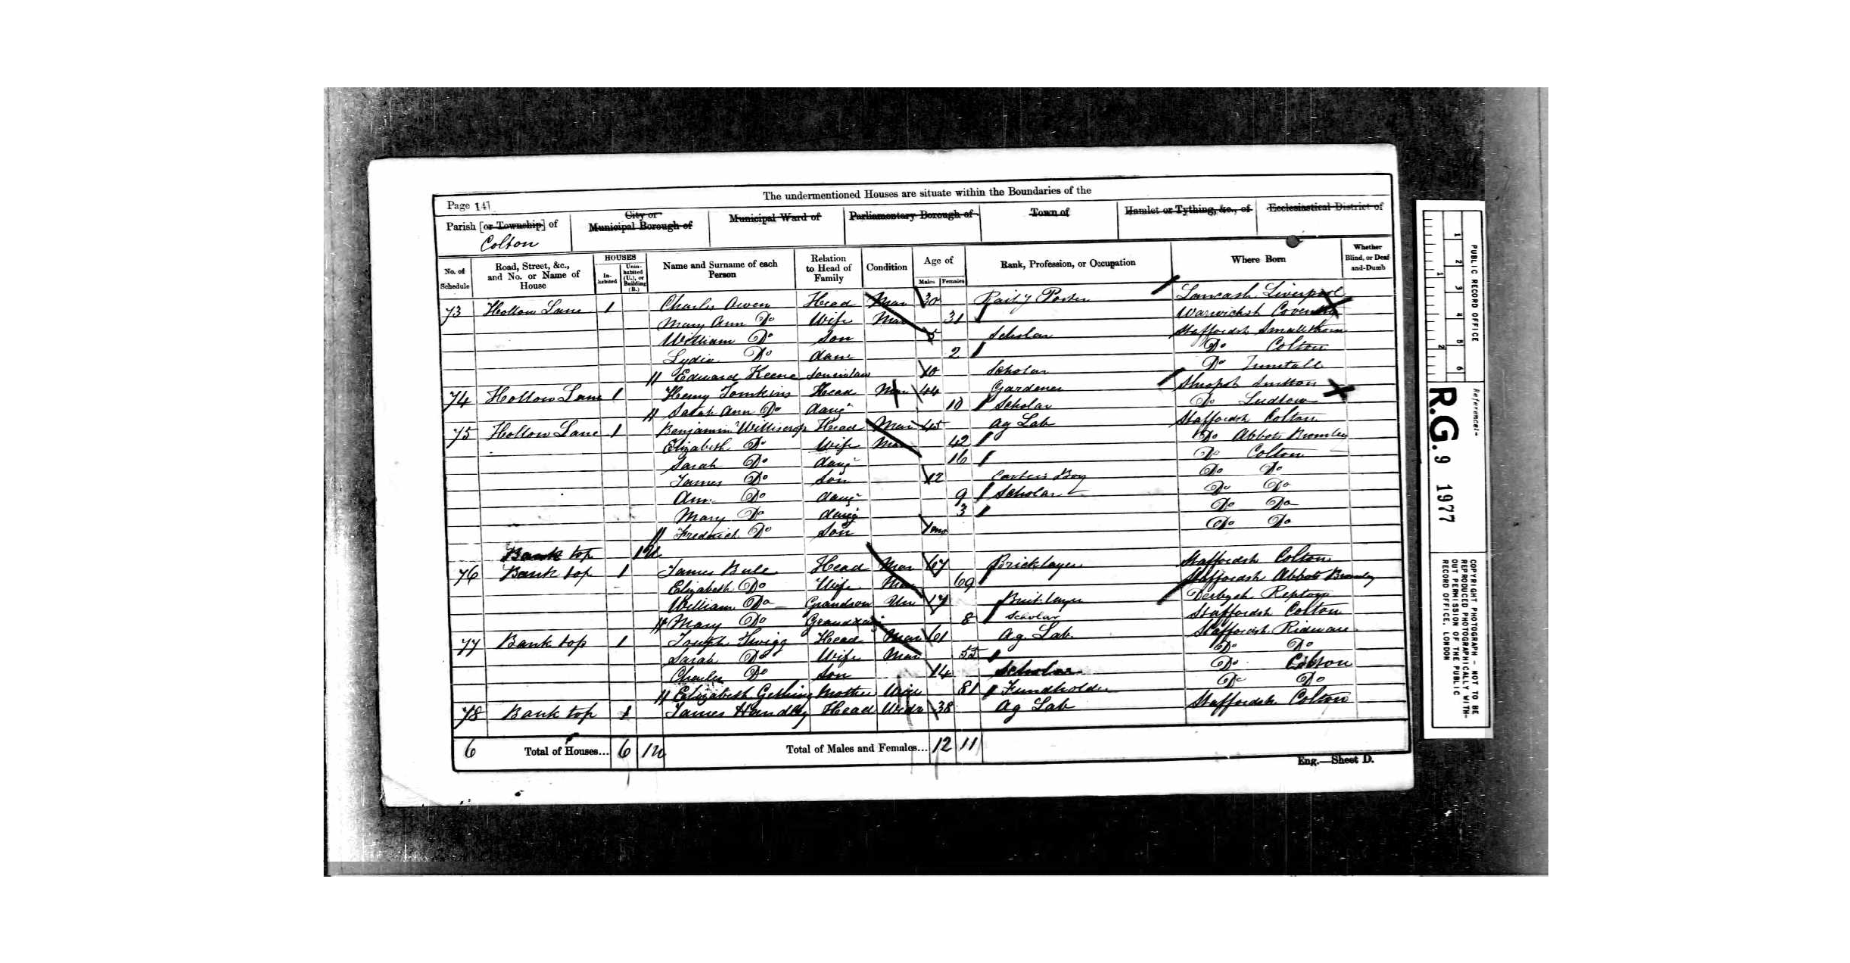 The undermentioned Houses are situate within the Boundaries of the
Page 14
Parish [or Township] of
Colton
City or
Municipal Borough of
Municipal Ward of
Parliamentary Borough of
Town of
Hamlet or Tything, &c., of
Ecclesiastical District of
No. of Schedule
Road, Street, &c., and No. or Name of House
HOUSES
In-habited
Unin-habited (U.), or Building (B.)
Name and Surname of each Person
Relation to Head of Family
Condition
Age of
Males Females
Rank, Profession, or Occupation
Where Born
Whether Blind, or Deaf and-Dumb
73 Hollow Lane 1 Charles Owen Head Mar 30 Rail'y Porter Lancash. Liverpool
Mary Ann Do Wife Mar 31 Warwicksh Coventry
William Do Son 5 Scholar Staffordsh Smallthorn
Lydia Do 2 Do Colton
Edward Keene Soninlaw 10 Scholar Do Tunstall
74 Hollow Lane 1 Henry Tomkins Head 44 Gardener Shropsh
Sarah Ann Do daug 10 Scholar Do Ludlow
75 Hollow Lane 1 Benjamin Head Mar 45 Ag Lab Staffordsh Colton
Elizabeth Do Wife Mar 42 Do Abbots Bromley
Sarah Do daug 16 Do Colton
James Do Son 12 Boy Do Do
Ann Do daug 9 Scholar Do Do
Mary Do daug 3 Do Do
Fredrick Do Son Do Do
Bank top 1U
76 Bank top 1 James Bull Head Mar 67 Bricklayer Staffordsh Colton
Elizabeth Do Wife Mar 69 Staffordsh Abbots Bromley
William Do Grandson Un 17 Derbysh Repton
Mary Do 8 Scholar Staffordsh Colton
77 Bank top 1 Joseph Twigg Head Mar 61 Ag Lab Staffordsh Ridware
Sarah Do Wife Mar 55 Do Do
Charles Do Son 14 Scholar Do Colton
Elizabeth Mother 81 Fundholder Do Do
78 Bank top 1 James Handley Head Widr 38 Ag Lab Staffordsh Colton
6 Total of Houses... 6 1U Total of Males and Females... 12 11
Eng.—Sheet D.
PUBLIC RECORD OFFICE
1 2 3 4 5 6
1 2
Reference:-
R.G. 9 1977
COPYRIGHT PHOTOGRAPH - NOT TO BE
REPRODUCED PHOTOGRAPHICALLY WITH-
OUT PERMISSION OF THE PUBLIC
RECORD OFFICE, LONDON